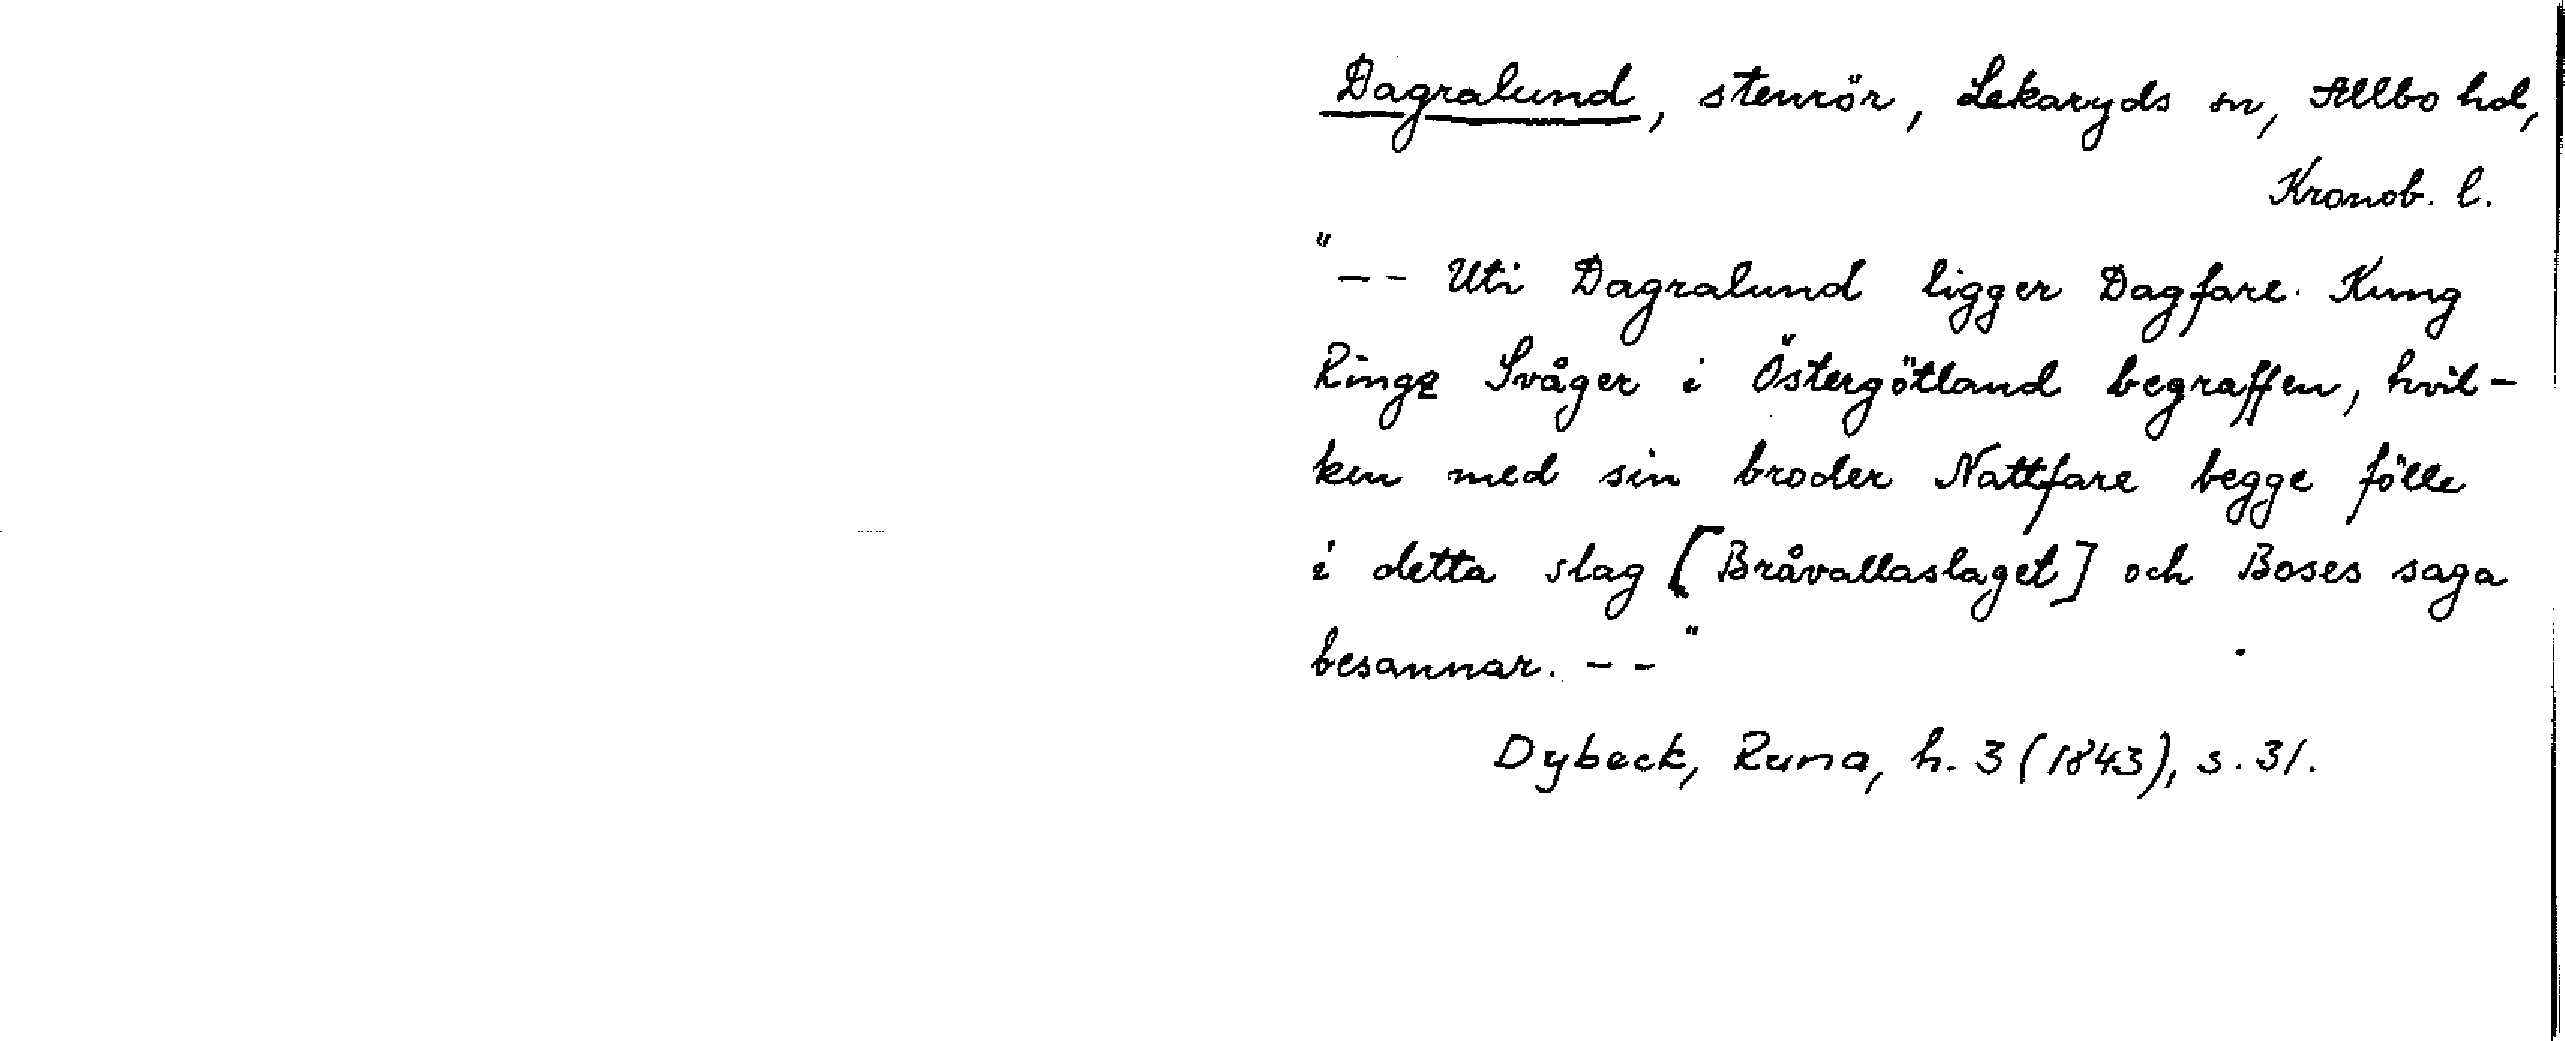 Dagralund, stenrör, Lekaryds sn, Allbo hd,
Kronob. l.
"-- Uti Dagralund ligger Dagfare. Kung
Rings Svåger i Östergötland begraffen, hvil-
ken med sin broder Nattfare begge fölle
i detta slag [Bråvallaslaget] och Boses saga
besannar. --"
Dybeck, Runa, h. 3 (1843), s. 31.